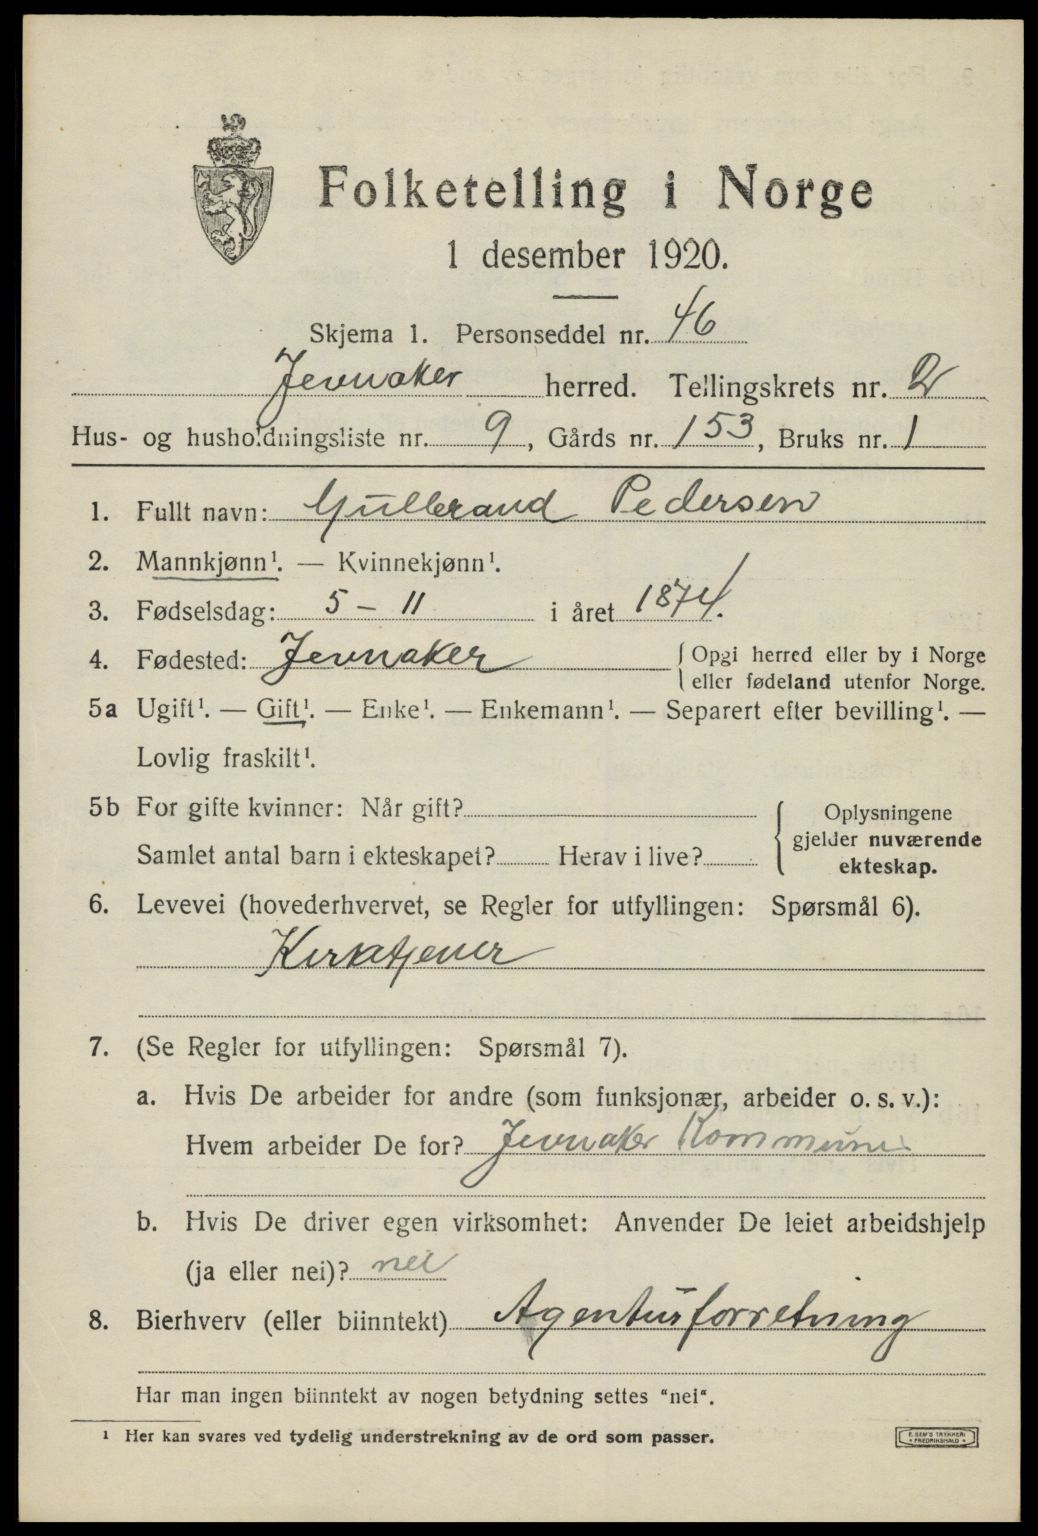 Folketelling i Norge
1 desember 1920.
Skjema 1. Personseddel nr. 46
Jevnaker herred. Tellingskrets nr. 2
Hus- og husholdningsliste nr. 9, Gårds nr. 153, Bruks nr. 1
1. Fullt navn: Gulbrand Pedersen
2. Mannkjønn¹. — Kvinnekjønn¹.
3. Fødselsdag: 5 - 11 i året 1874.
4. Fødested: Jevnaker { Opgi herred eller by i Norge
eller fødeland utenfor Norge.
5a Ugift¹. — Gift¹. — Enke¹. — Enkemann¹. — Separert efter bevilling¹. —
Lovlig fraskilt¹.
5b For gifte kvinner: Når gift?
Samlet antal barn i ekteskapet? Herav i live?
{ Oplysningene
gjelder nuværende
ekteskap.
6. Levevei (hovederhvervet, se Regler for utfyllingen: Spørsmål 6).
Kirketjener
7. (Se Regler for utfyllingen: Spørsmål 7).
a. Hvis De arbeider for andre (som funksjonær, arbeider o. s. v.):
Hvem arbeider De for? Jevnaker Kommune
b. Hvis De driver egen virksomhet: Anvender De leiet arbeidshjelp
(ja eller nei)? nei
8. Bierhverv (eller biinntekt) Agenturforretning
Har man ingen biinntekt av nogen betydning settes "nei".
¹ Her kan svares ved tydelig understrekning av de ord som passer.
E. SEM'S TRYKKERI
FREDRIKSHALD